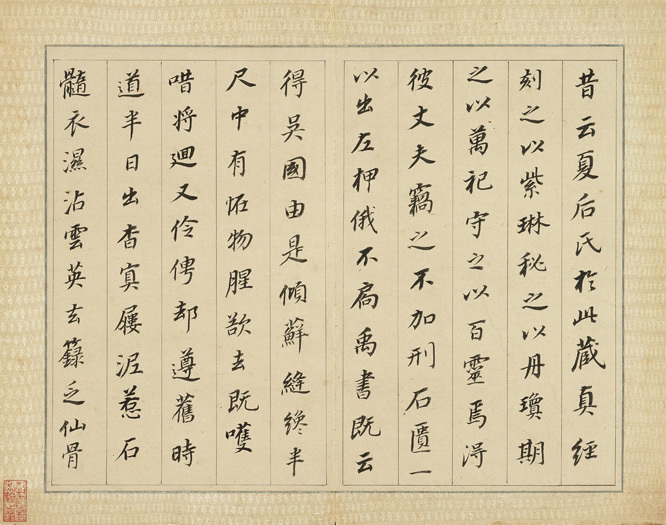 昔云夏后氏於此藏真經
刻之以紫琳秘之以丹瓊期
之以萬祀守之以百靈焉得
彼丈夫竊之不加刑石匱一
以出左押俄不扃禹書既云
得吳國由是傾蘚縫纔半
尺中有怪物腥欲去既嚄
唶將迴又伶俜却遵舊時
道半日出杳冥屨泥惹石
髓衣濕沾雲英玄籙乏仙骨